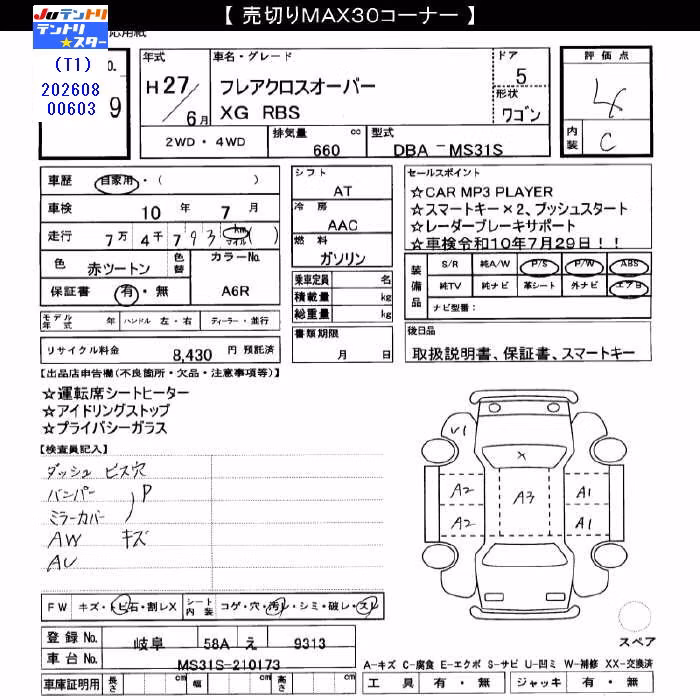 【 売切りMAX30コーナー 】
JUテントリ
テントリ
★スター
応用紙
(T1)
202608
00603
o.
9
年式
H 27／6月
車名・グレード
フレアクロスオーバー
XG RBS
ドア
5
形状
ワゴン
評価点
4
内装
C
2WD・4WD
排気量 660 cc
型式 DBA － MS31S
車歴 自家用・( )
車検 10 年 7 月
走行 7万 4千 7 9 3 km マイル ( )
色 赤ツートン
色替
カラーNo. A6R
保証書 有・無
モデル年式 年 ハンドル 左・右 ディーラー・並行
リサイクル料金 8,430 円 預託済
シフト
AT
冷房
AAC
燃料
ガソリン
乗車定員 名
積載量 kg
総重量 kg
書類期限
月 日
セールスポイント
☆CAR MP3 PLAYER
☆スマートキー×2、プッシュスタート
☆レーダーブレーキサポート
☆車検令和10年7月29日！！
装備品
S/R 純A/W P/S P/W ABS
純TV 純ナビ 革シート 外ナビ エアB
ナビ型番:
後日品
取扱説明書、保証書、スマートキー
【出品店申告欄(不良箇所・欠品・注意事項等)】
☆運転席シートヒーター
☆アイドリングストップ
☆プライバシーガラス
【検査員記入】
ダッシュ ビス穴
バンパー
ミラーカバー ) P
AW キズ
AU
V1
X
A2 A3 A1
A2 A1
FW キズ・トビ石・割レX
シート内装 コゲ・穴・汚レ・シミ・破レ・スレ
登録No. 岐阜 58A え 9313
車台No. MS31S-210173
車庫証明用 長さ cm 幅 cm 高さ cm
スペア
A-キズ C-腐食 E-エクボ S-サビ U-凹ミ W-補修 XX-交換済
工具 有・無 ジャッキ 有・無